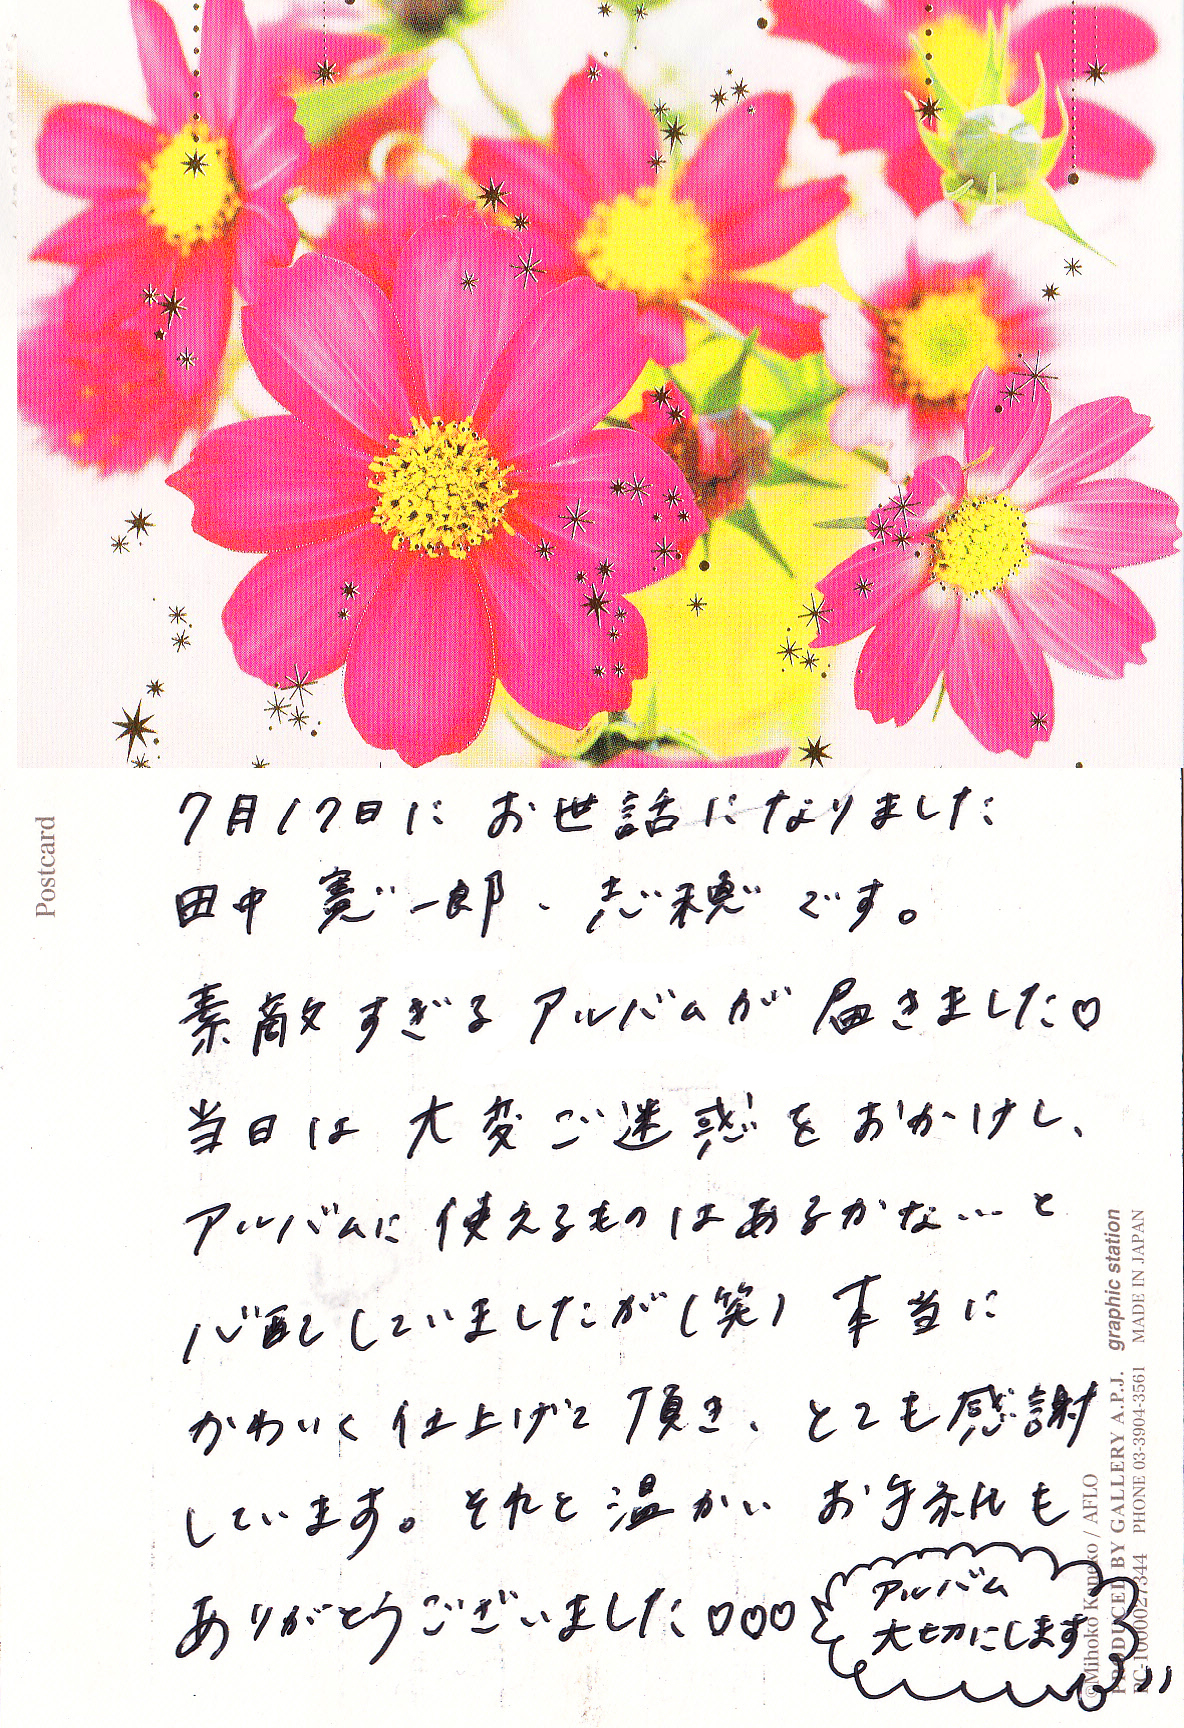 Postcard
7月17日に お世話になりました
田中 寛一郎・志穂 です。
素敵すぎる アルバムが 届きました♡
当日は 大変ご迷惑を おかけし、
アルバムに 使えるものはあるかな…と
心配していましたが(笑) 本当に
かわいく 仕上げて 頂き、とても感謝
しています。それと温かい お手紙も
ありがとうございました♡♡♡
アルバム
大切にします
graphic station MADE IN JAPAN
PRODUCED BY GALLERY A.P.J. PHONE 03-3904-3561
©Mihoko Kaneko / AFLO
PC-1000027344